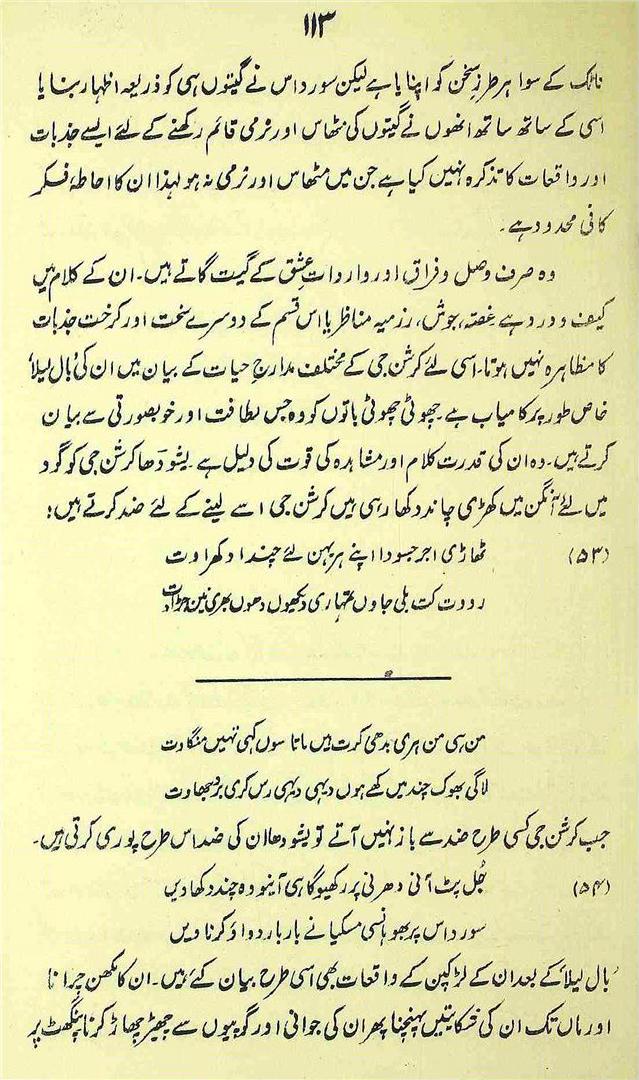 ۱۱۳
ناٹک کے سوا ہر طرزِ سخن کو اپنایا ہے لیکن سور داس نے گیتوں ہی کو ذریعہ اظہار بنایا
اسی کے ساتھ ساتھ انھوں نے گیتوں کی مٹھاس اور نرمی قائم رکھنے کے لئے ایسے جذبات
اور واقعات کا تذکرہ نہیں کیا ہے جن میں مٹھاس اور نرمی نہ ہو لہذا ان کا احاطۂ فکر
کافی محدود ہے۔
وہ صرف وصل و فراق اور وارداتِ عشق کے گیت گاتے ہیں۔ ان کے کلام میں
کیف و درد ہے غصّہ، جوش، رزمیہ مناظر یا اس قسم کے دوسرے سخت اور کرخت جذبات
کا مظاہرہ نہیں ہوتا۔ اسی لئے کرشن جی کے مختلف مدارجِ حیات کے بیان میں ان کی ’بال لیلا‘
خاص طور پر کامیاب ہے۔ چھوٹی چھوٹی باتوں کو وہ جس لطافت اور خوبصورتی سے بیان
کرتے ہیں۔ وہ ان کی قدرت کلام اور مشاہدہ کی قوت کی دلیل ہے۔ یشودھا کرشن جی کو گود
میں لئے آنگن میں کھڑی چاند دکھا رہی ہیں کرشن جی اسے لینے کے لئے ضد کرتے ہیں:
(۵۳) ٹھاڑی اجر جسودا اپنے ہریہن لئے چندا دکھراوت
رووت کت بلی جاوں تمہاری دیکھوں دھوں بھری نین
من ہی من ہری بدھی کرت ہیں ماتا سوں کہی نہیں منگاوت
لاگی بھوک چند میں کھے ہوں دیہی دیہی رس کری
جب کرشن جی کسی طرح ضد سے باز نہیں آتے تو یشودھا ان کی ضد اس طرح پوری کرتی ہیں۔
(۵۴) جُل پٹ آنی دھرنی پر رکھیو گاہی آنیو وہ چند دکھادیں
سور داس پربھو ہنسی مسکیانے بار بار دواؤ کرناویں
’بال لیلا‘ کے بعد ان کے لڑکپن کے واقعات بھی اسی طرح بیان کئے ہیں۔ ان کا مکھن چرانا
اور ماں تک ان کی شکایتیں پہنچنا پھر ان کی جوانی اور گوپیوں سے چھیڑ چھاڑ کرنا پنگھٹ پر